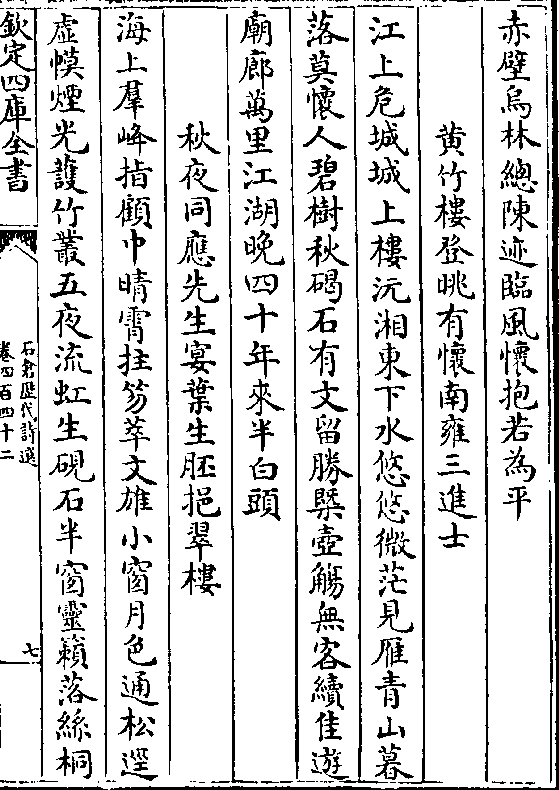 赤壁烏林總陳迹臨風懷抱若為平
黄竹樓登眺有懷南雍三進士
江上危城城上樓沅湘東下水悠悠微茫見雁青山暮
落莫懷人碧樹秋碣石有文留勝槩壺觴無客續佳遊
廟廊萬里江湖晩四十年來半白頭
秋夜同應先生宴葉生胚挹翠樓
海上羣峰指顧中晴霄拄笏萃文雄小窗月色通松逕
虚幌煙光護竹叢五夜流虹生硯石半窗靈籟落絲桐
欽定四庫全書
石倉歴代詩選
卷四百四十二
七